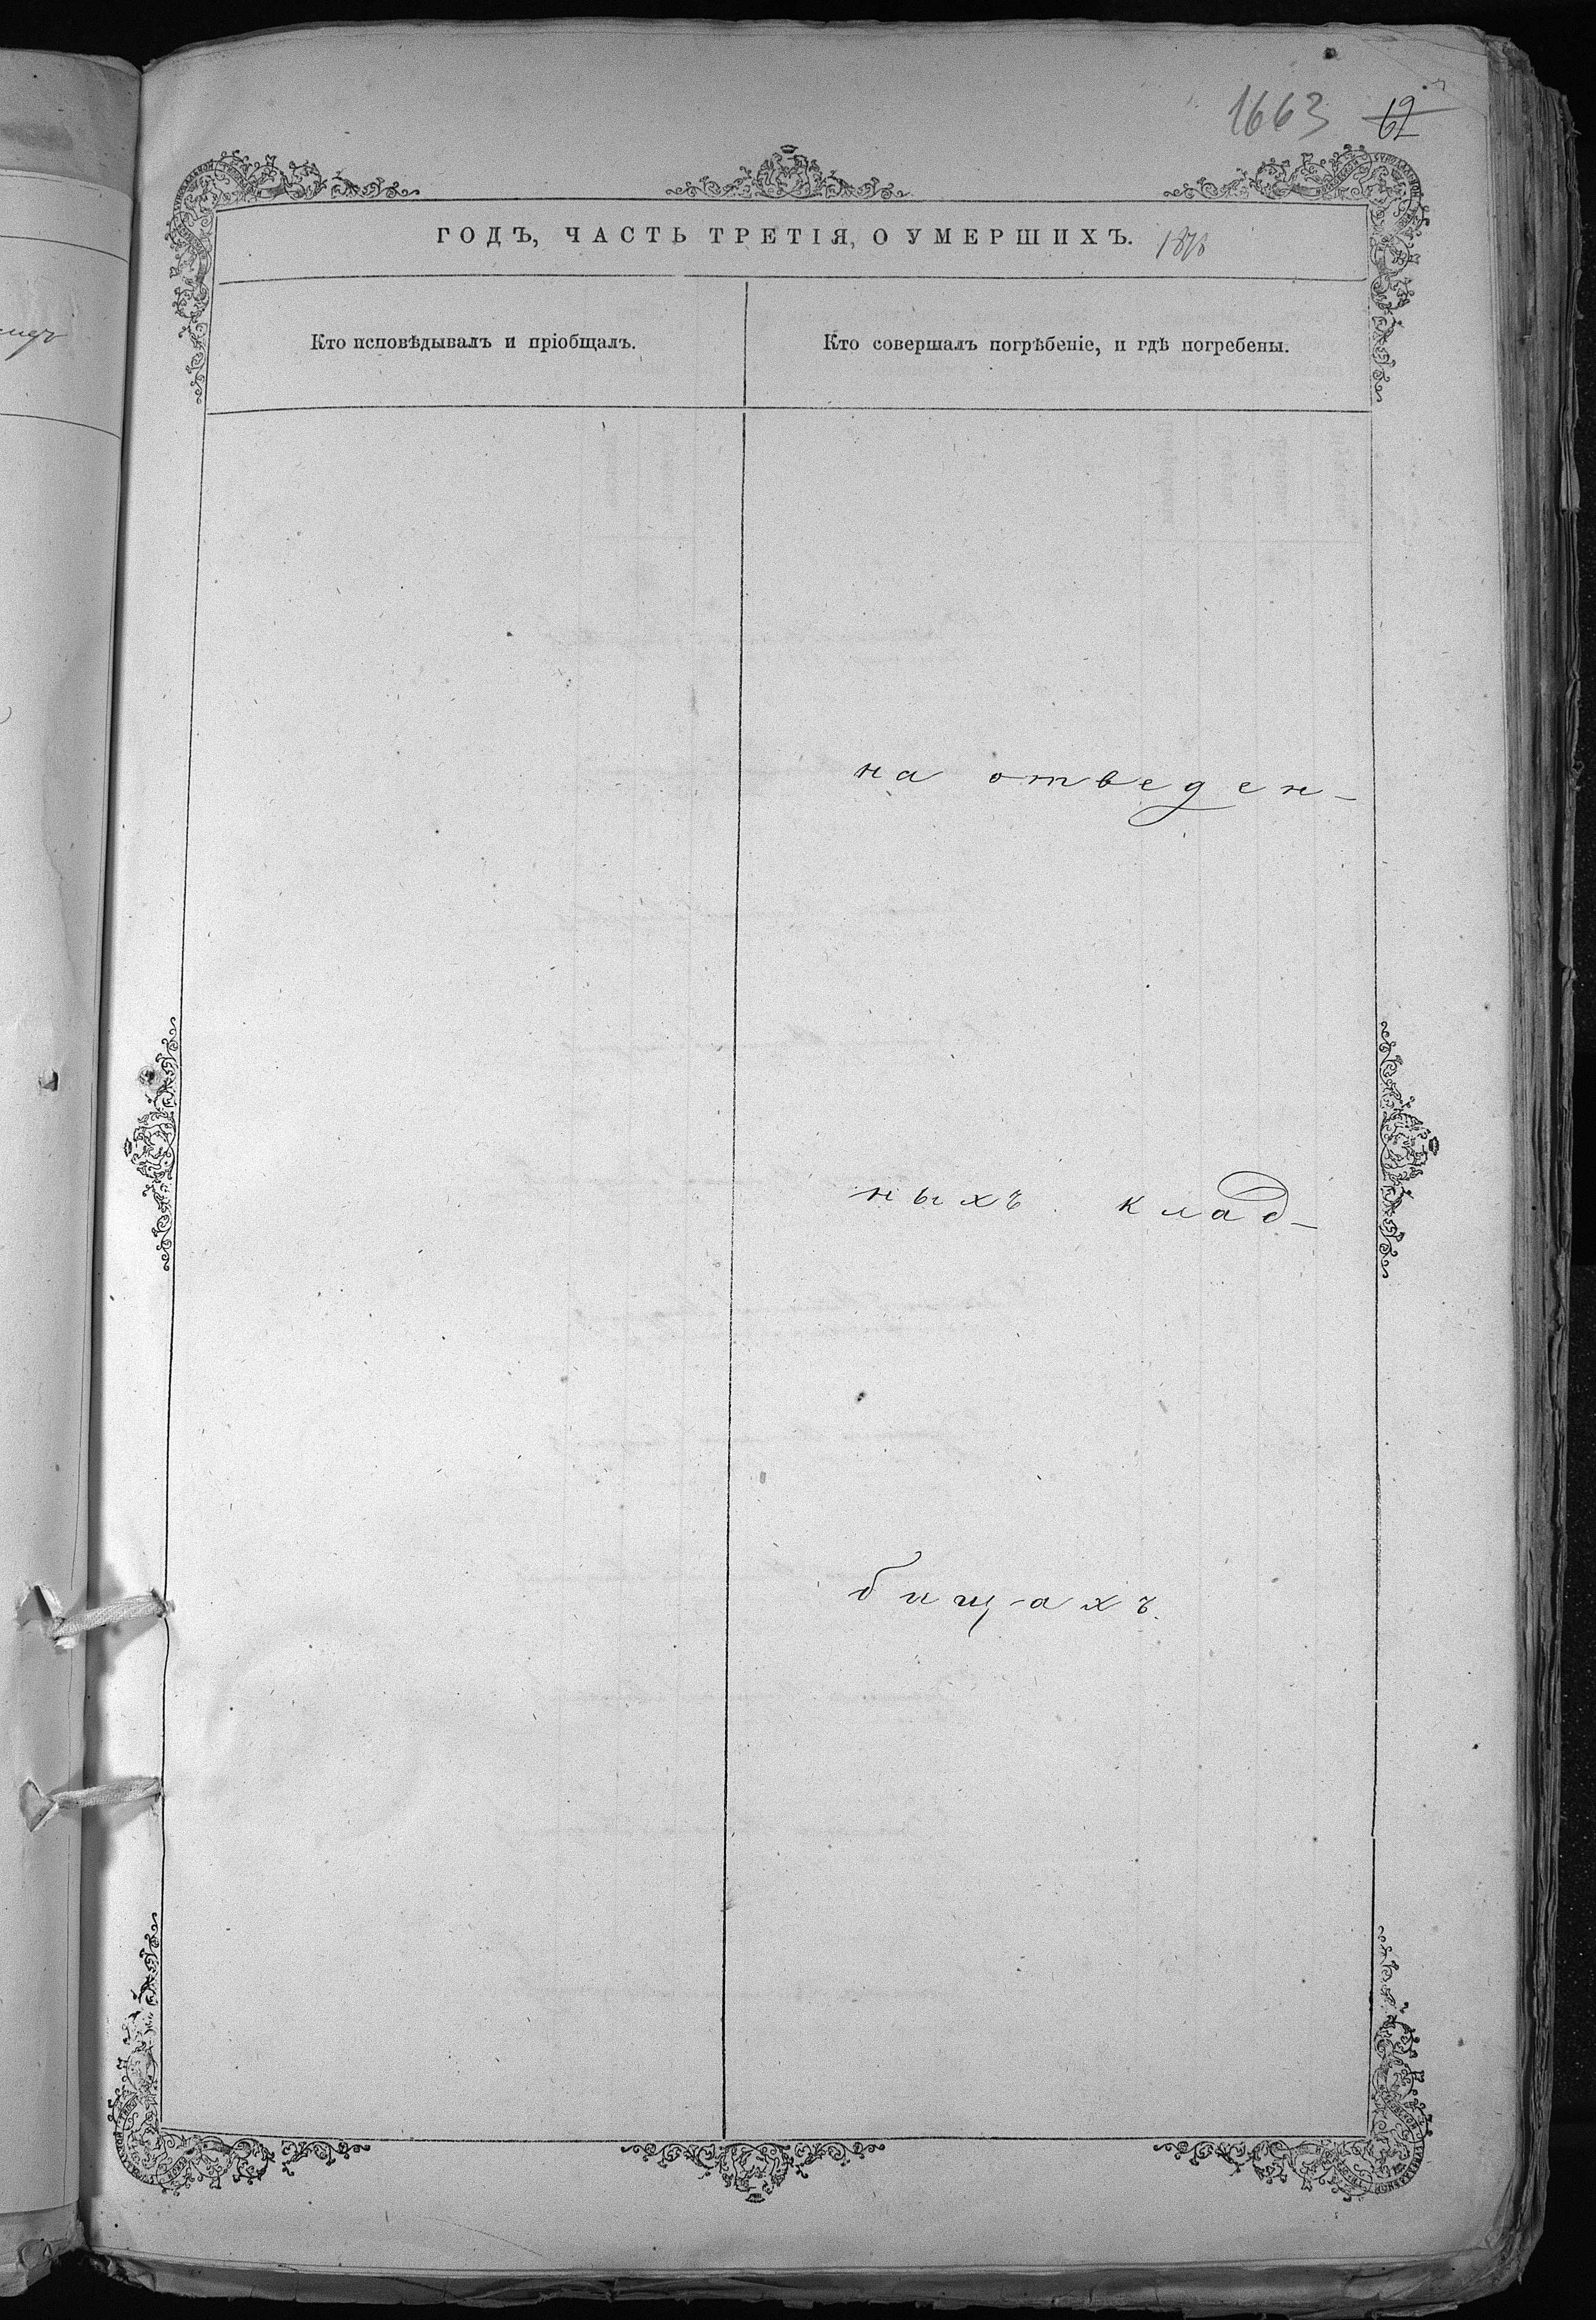 1663 62
ГОДЪ, ЧАСТЬ ТРЕТІЯ, О УМЕРШИХЪ. 1878
Кто исповѣдывалъ и пріобщалъ.
Кто совершалъ погрѣбеніе, и гдѣ погребены.
на отведен-
ныхъ клад-
бищахъ.